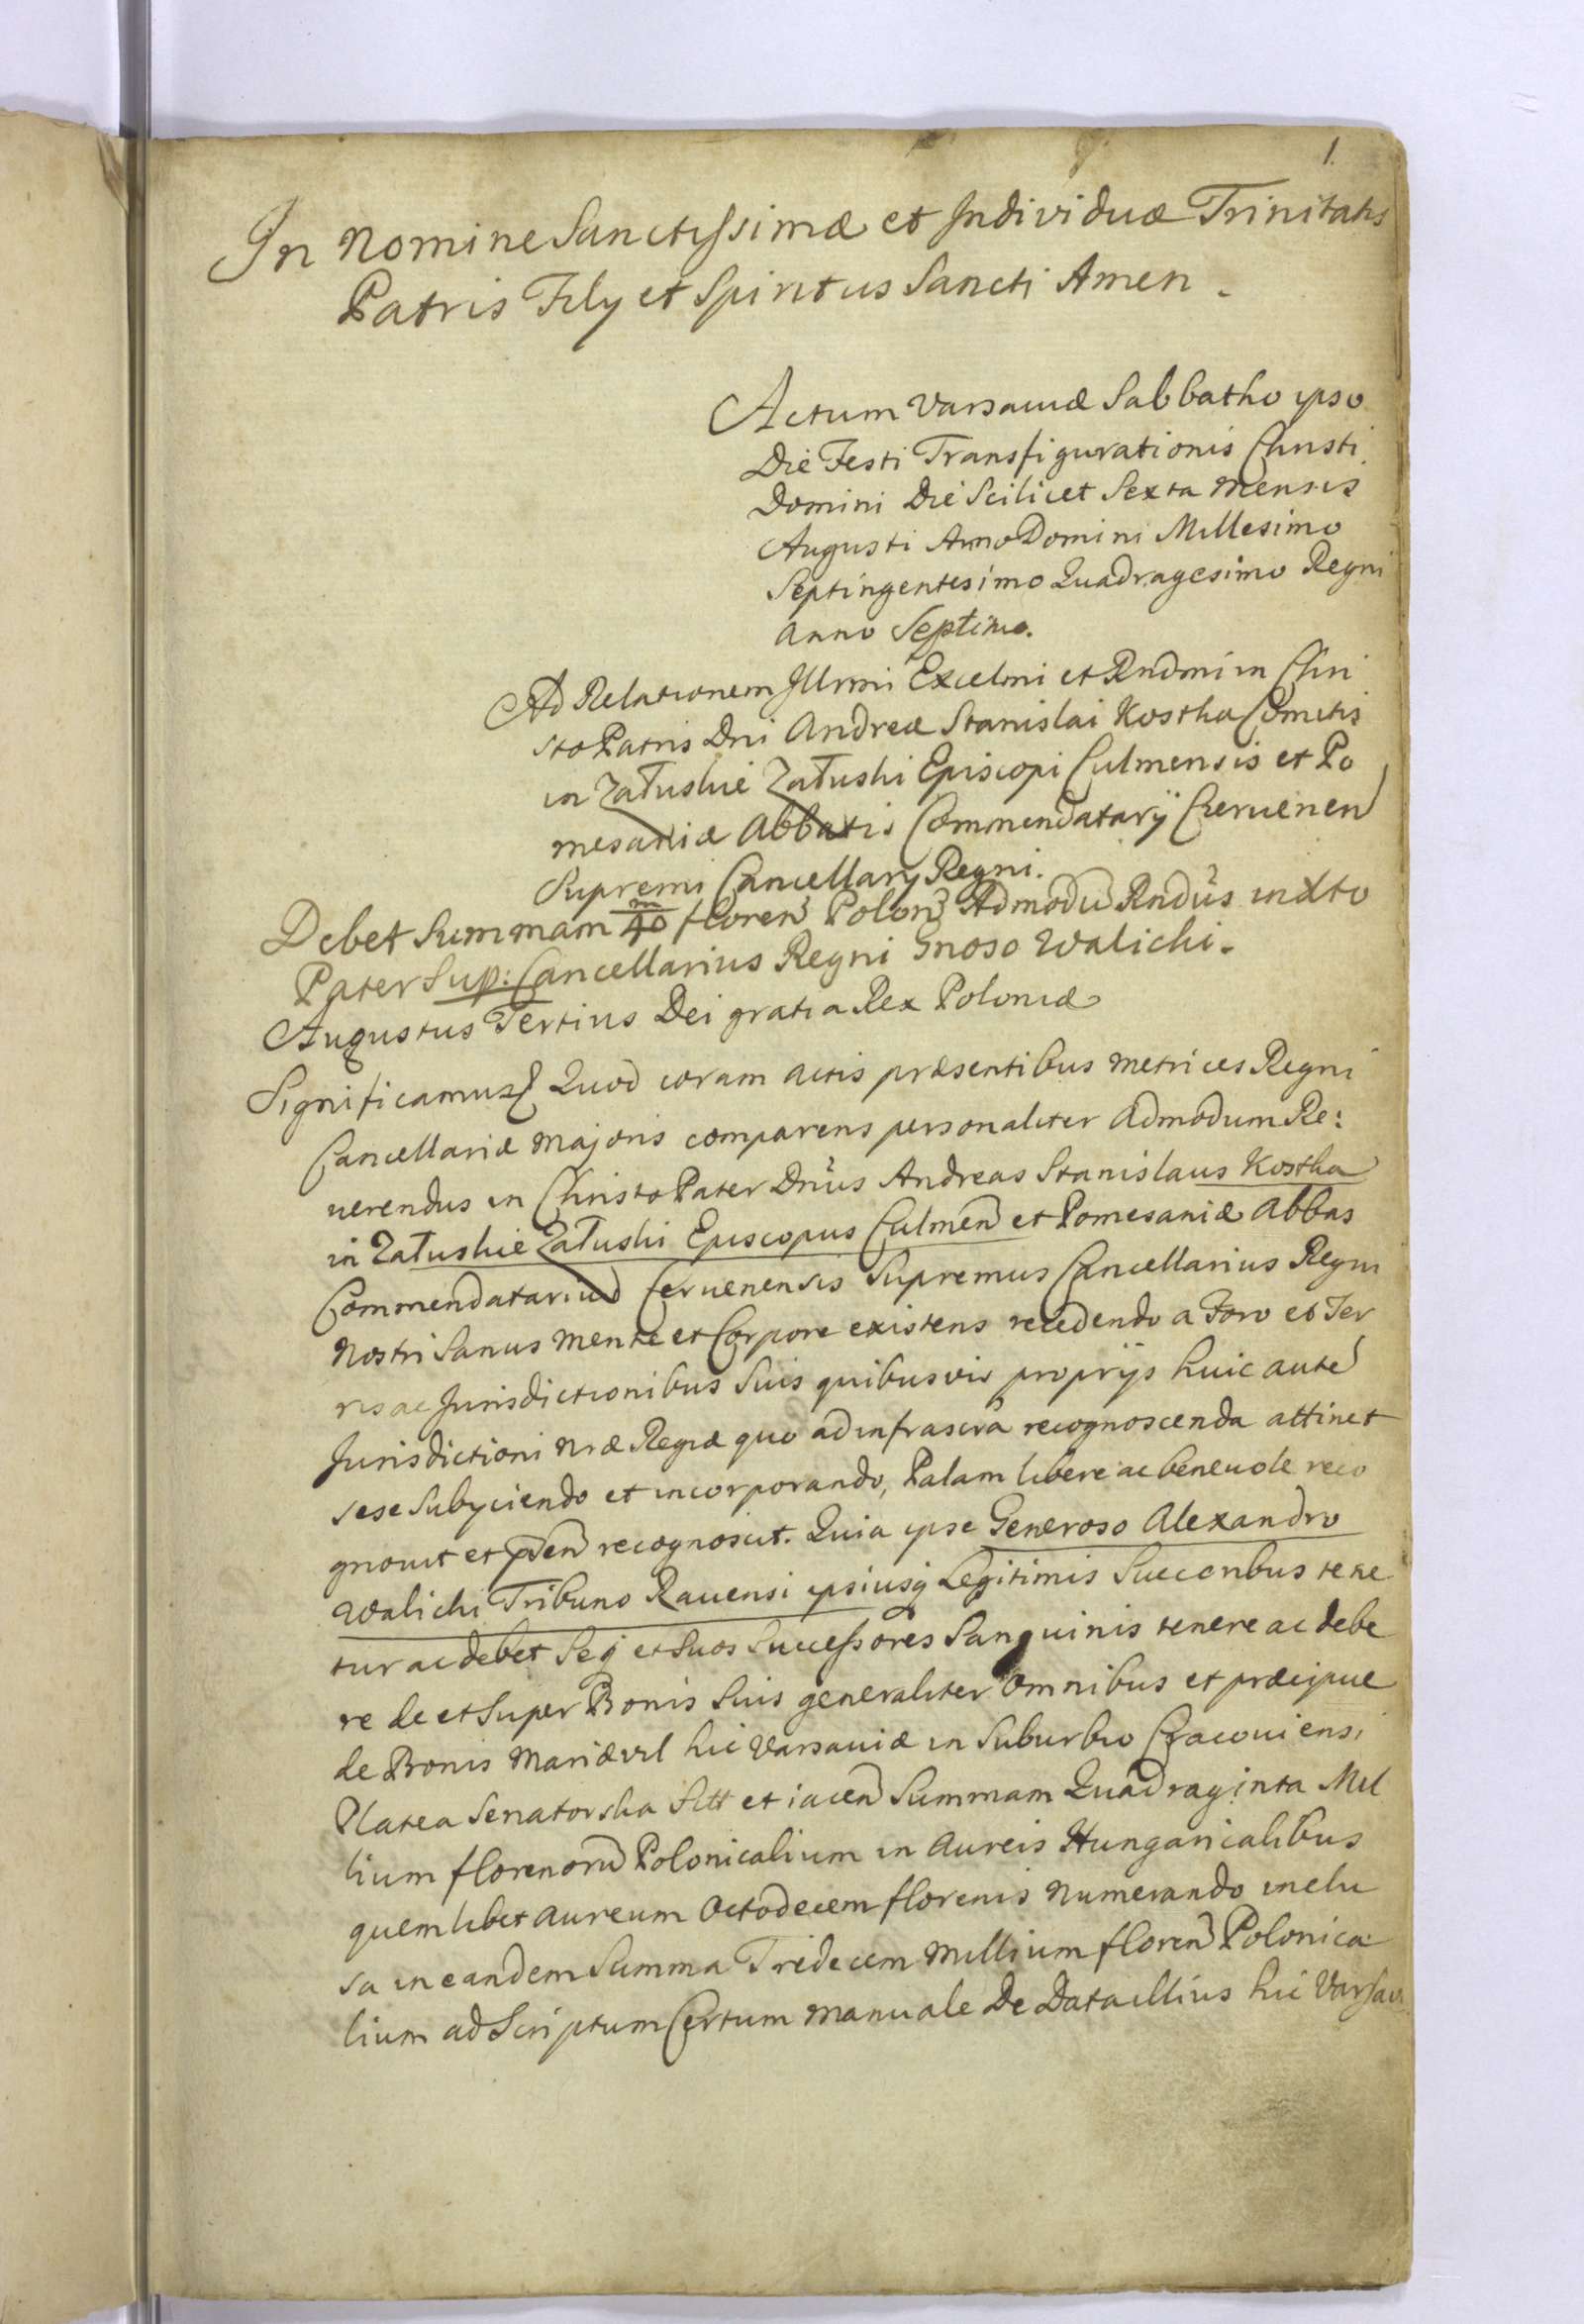 1.
In Nomine Sanctissimæ et Individuæ Trinitatis
Patris Fily et Spiritus Sancti Amen.
Actum Varsaviæ Sabbatho ipso
Die Festi Transfigurationis Christi
Domini Die Scilicet Sexta Mensis
Augusti Anno Domini Millesimo
Septingentesimo Quadragesimo Regni
Anno Septimo.
Ad Relationem Illrmi Excelmi et Rndmi in Chri
sto Patris Dni Andreæ Stanislai Kostka Comitis
in Załuskie Załuski Episcopi Culmensis et Po
mesaniæ Abbatis Commendatarÿ Czeruenen
Supremi Cancellary Regni.
Debet Summam 40 m floren Polon Admodu Rndus in Xto
Pater Sup: Cancellarius Regni Gnoso Walichi.
Augustus Tertius Dei gratia Rex Poloniæ
Significamus Quod coram actis præsentibus Metrices Regni
Cancellariæ Majoris comparens personaliter Admodum Re:
uerendus in Christo Pater Dnus Andreas Stanislaus Kostka
in Załuskie Załuski Episcopus Culmen et Pomesaniæ Abbas
Commendatarius Czeruenensis Supremus Cancellarius Regni
Nostri Sanus Mente et Corpore existens recedendo a Foro et Ter
ris ac Jurisdictionibus Suis quibusvis proprijs huic aute
Jurisdictioni Nræ Regiæ quo ad infrascra recognoscenda attinet
sese Subyciendo et incorporando, Palam libere ac beneuole reco
gnouit et pñ recognoscit. Quia ipse Generoso Alexandro
Walichi Tribuno Rauensi ipsiusq Legitimis Succoribus tene
tur ac debet Seq et Suos Successores Sanguinis tenere ac debe
re de et Super Bonis Suis generaliter Omnibus et præcipue
de Bonis Mariævil hic Varsauiæ in Suburbio Cracouiensi
Platea Senatorska Sitt et iacen Summam Quadraginta Mil
lium florenoru Polonicalium in Aureis Hungaricalibus
quemlibet Aureum Octodecem florenis Numerando inclu
sa in eandem Summa Tredecem Millium floren Polonica
lium ad Scriptum Certum Manuale De Data illius hic Varsav